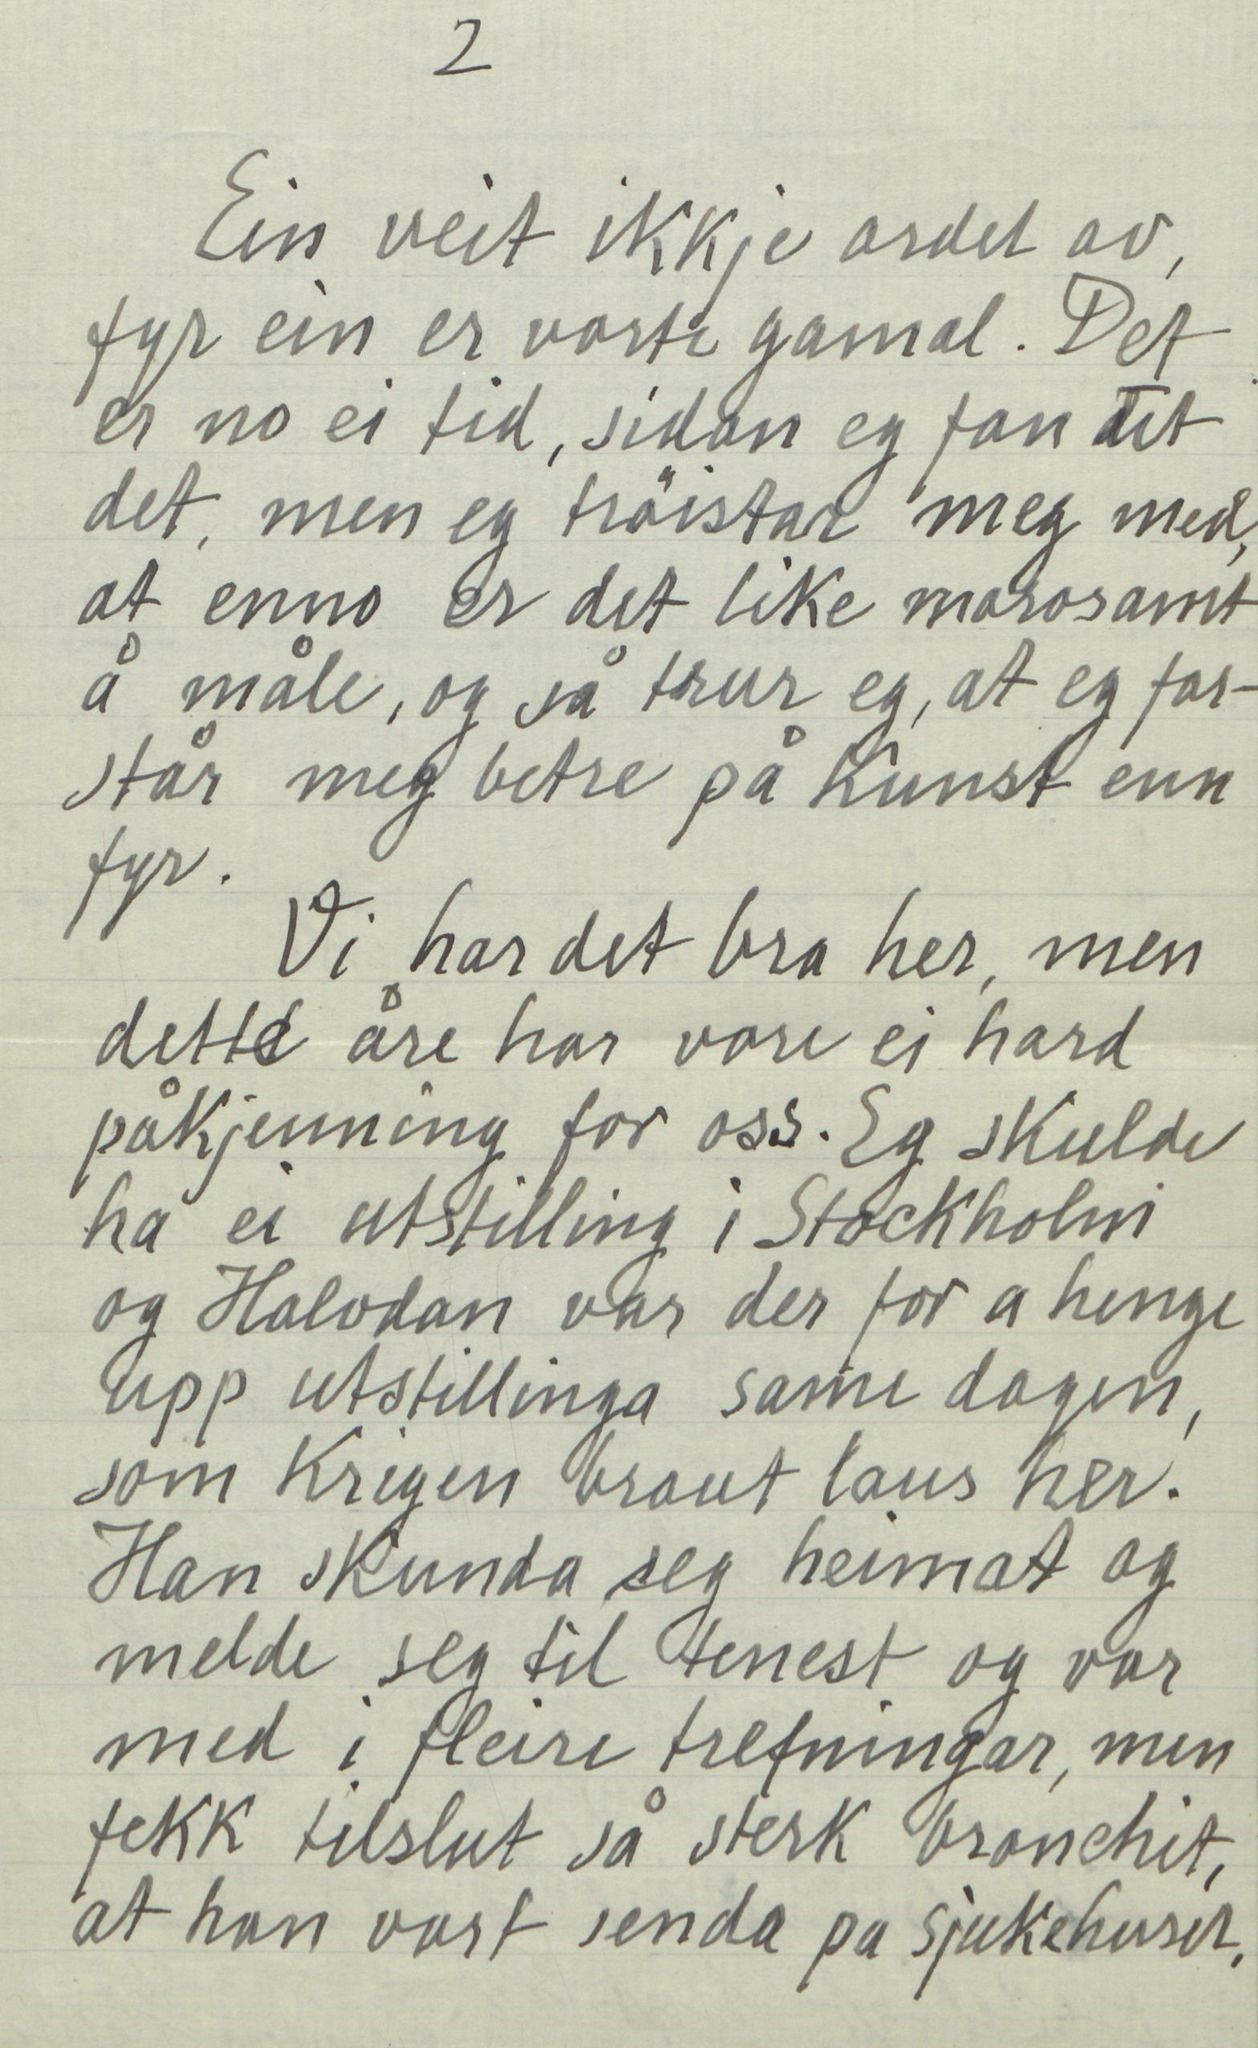 2
Ein veit ikkje ordet av,
fyr ein er vorte gamal. Det
er no ei tid, sidan eg fan ut
det, men eg tröistar meg med,
at enno er det like morosamt
å måle, og så trur eg, at eg for-
står meg betre på kunst enn
fyr.
Vi har det bra her, men
dette åre har vore ei hard
påkjenning for oss. Eg skulde
ha ei utstilling i Stockholm
og Halvdan var der for a henge
upp utstillinga same dagen,
som krigen braut laus her.
Han skunda seg heimat og
melde seg til tenest og var
med i fleire trefningar, men
fekk tilslut så sterk bronchit,
at han vart senda pa sjukehuset,